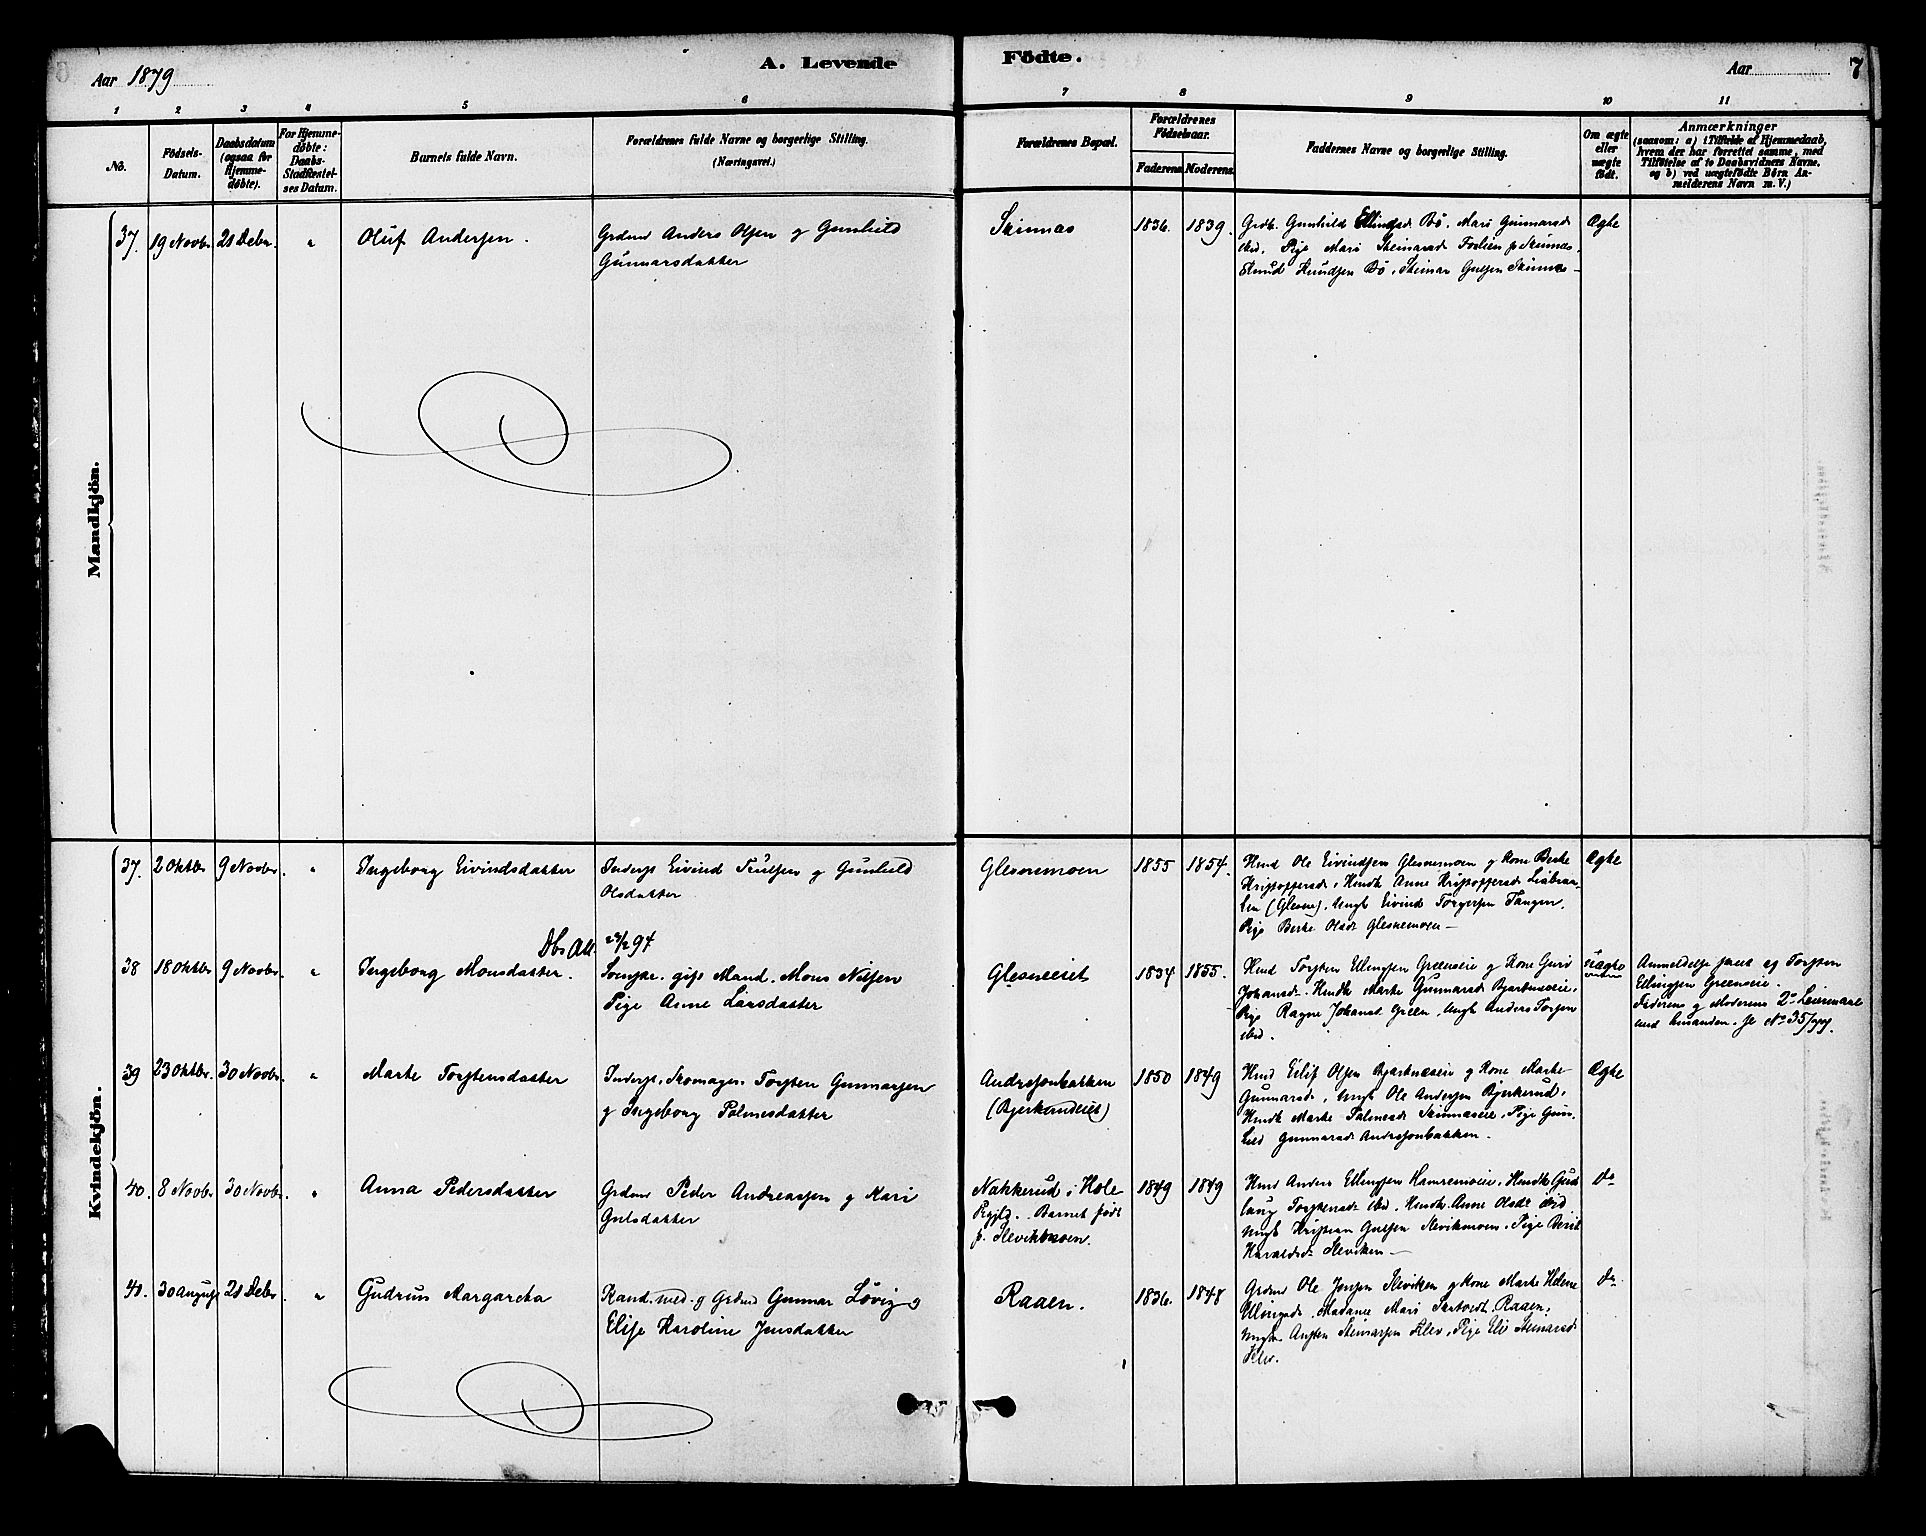 Aar 1879
A. Levende
Födte.
Aar
7
1 2 3 4 5 6 7 8 9 10 11
No.
Födsels-
Datum.
Daabsdatum
(ogsaa for
Hjemme-
døbte).
For Hjemme-
døbte:
Daabs-
Stadfæstel-
ses Datum.
Barnets fulde Navn.
Forældrenes fulde Navne og borgerlige Stilling.
(Næringsvei.)
Forældrenes Bopæl.
Forældrenes
Födselsaar.
Faderens
Moderens
Faddernes Navne og borgerlige Stilling.
Om ægte
eller
uægte
født.
Anmærkninger
(saasom: a) i Tilfælde af Hjemmedaab,
hvem der har forrettet samme, med
Tilføielse af to Daabsvidners Navne,
og b) ved uægtefødte Børn An-
melderens Navn m. V.)
Mandkjön.
37. 19 Novbr 21 Debr. " Oluf Andersen. Grdmd Anders Olsen g Gunhild
Gunnarsdatter
Skinnas 1836. 1839. Grdb. Gunhild Ellingsd Bö, Mari Gunnarsd
ibid, Pige Mari Steinarsd Foslien p Skinnas,
Knud Knudsen Bö, Steinar Gulsen Skinnas
Ægte
Kvindekjön.
37. 2 Oktbr 9 Novbr. " Ingeborg Eivindsdatter Inderst Eivind Trulsen g Gunhild
Olsdatter
Glesnemoen 1855 1854. Hmd Ole Eivindsen Glesnemoen g Kone Berte
Kristoffersd, Hmdk Anne Kristoffersd Liabraa-
ten (Glesne), Ungk Eivind Torgersen Tangen,
Pige Berte Olsdt Glesnemoen
Ægte
Db. Att. 24/2 94
38 18 Oktbr 9 Novbr. " Ingeborg Monsdatter. Svenske. gift Mand. Mons Nilsen
Pige Anne Larsdatter
Glesneeiet 1834 1855. Hmd Torsten Ellingsen Greeneeie g Kone Guri
Johansd. Hmdk Marte Gunnarsd Bjertnæseie,
Pige Ragne Johansd Green, Ungk Anders Torsen
ibid.
uægte
Anmeldelse paa af Torsten
Ellingsen Greeneeie.
Faderens g Moderens 2det Leiermaal
med hinanden. Se No 35/77.
39 23 Oktbr. 30 Novbr. " Marte Torstensdatter Inderst, Skomager Torsten Gunnarsen
g Ingeborg Palmesdatter
Andersonbakken
(Bjerkerudeiet)
1850 1849 Hmd Eilif Olsen Bjertnæseie g Kone Marte
Gunnarsd, Ungk Ole Andersen Bjerkerud,
Hmdk Marte Palmesd Skinnaseie, Pige Gun-
hild Gunnarsd Andersonbakken.
Ægte
40. 8 Novbr 30 Novbr. " Anna Pedersdatter Grdmd Peder Andreassen g Kari
Gulsdatter
Nakkerud i Hole
Prgjld. Barnet født
p. Slevikmoen.
1849 1849 Hmd Anders Ellingsen Hamremoeie, Hmdk Gud
laug Torstensd ibid, Hmdk Anne Olsdt ibid
Ungk Kristian Gulsen Slevikmoen, Pige Berit
Haraldsd Sleviken
do
41. 30 August 21 Debr. " Gudrun Margaretha Kand. med. g Grdmd Gunnar Lövig g
Elise Karoline Jensdatter
Raaen. 1836. 1848 Grdmd Ole Jensen Sleviken g Kone Marte Helene
Ellingsd, Madame Mari Skatvedt Raaen,
Ungk. Austen Steinarsen Klev, Pige Eli Steinarsd
Klev.
do